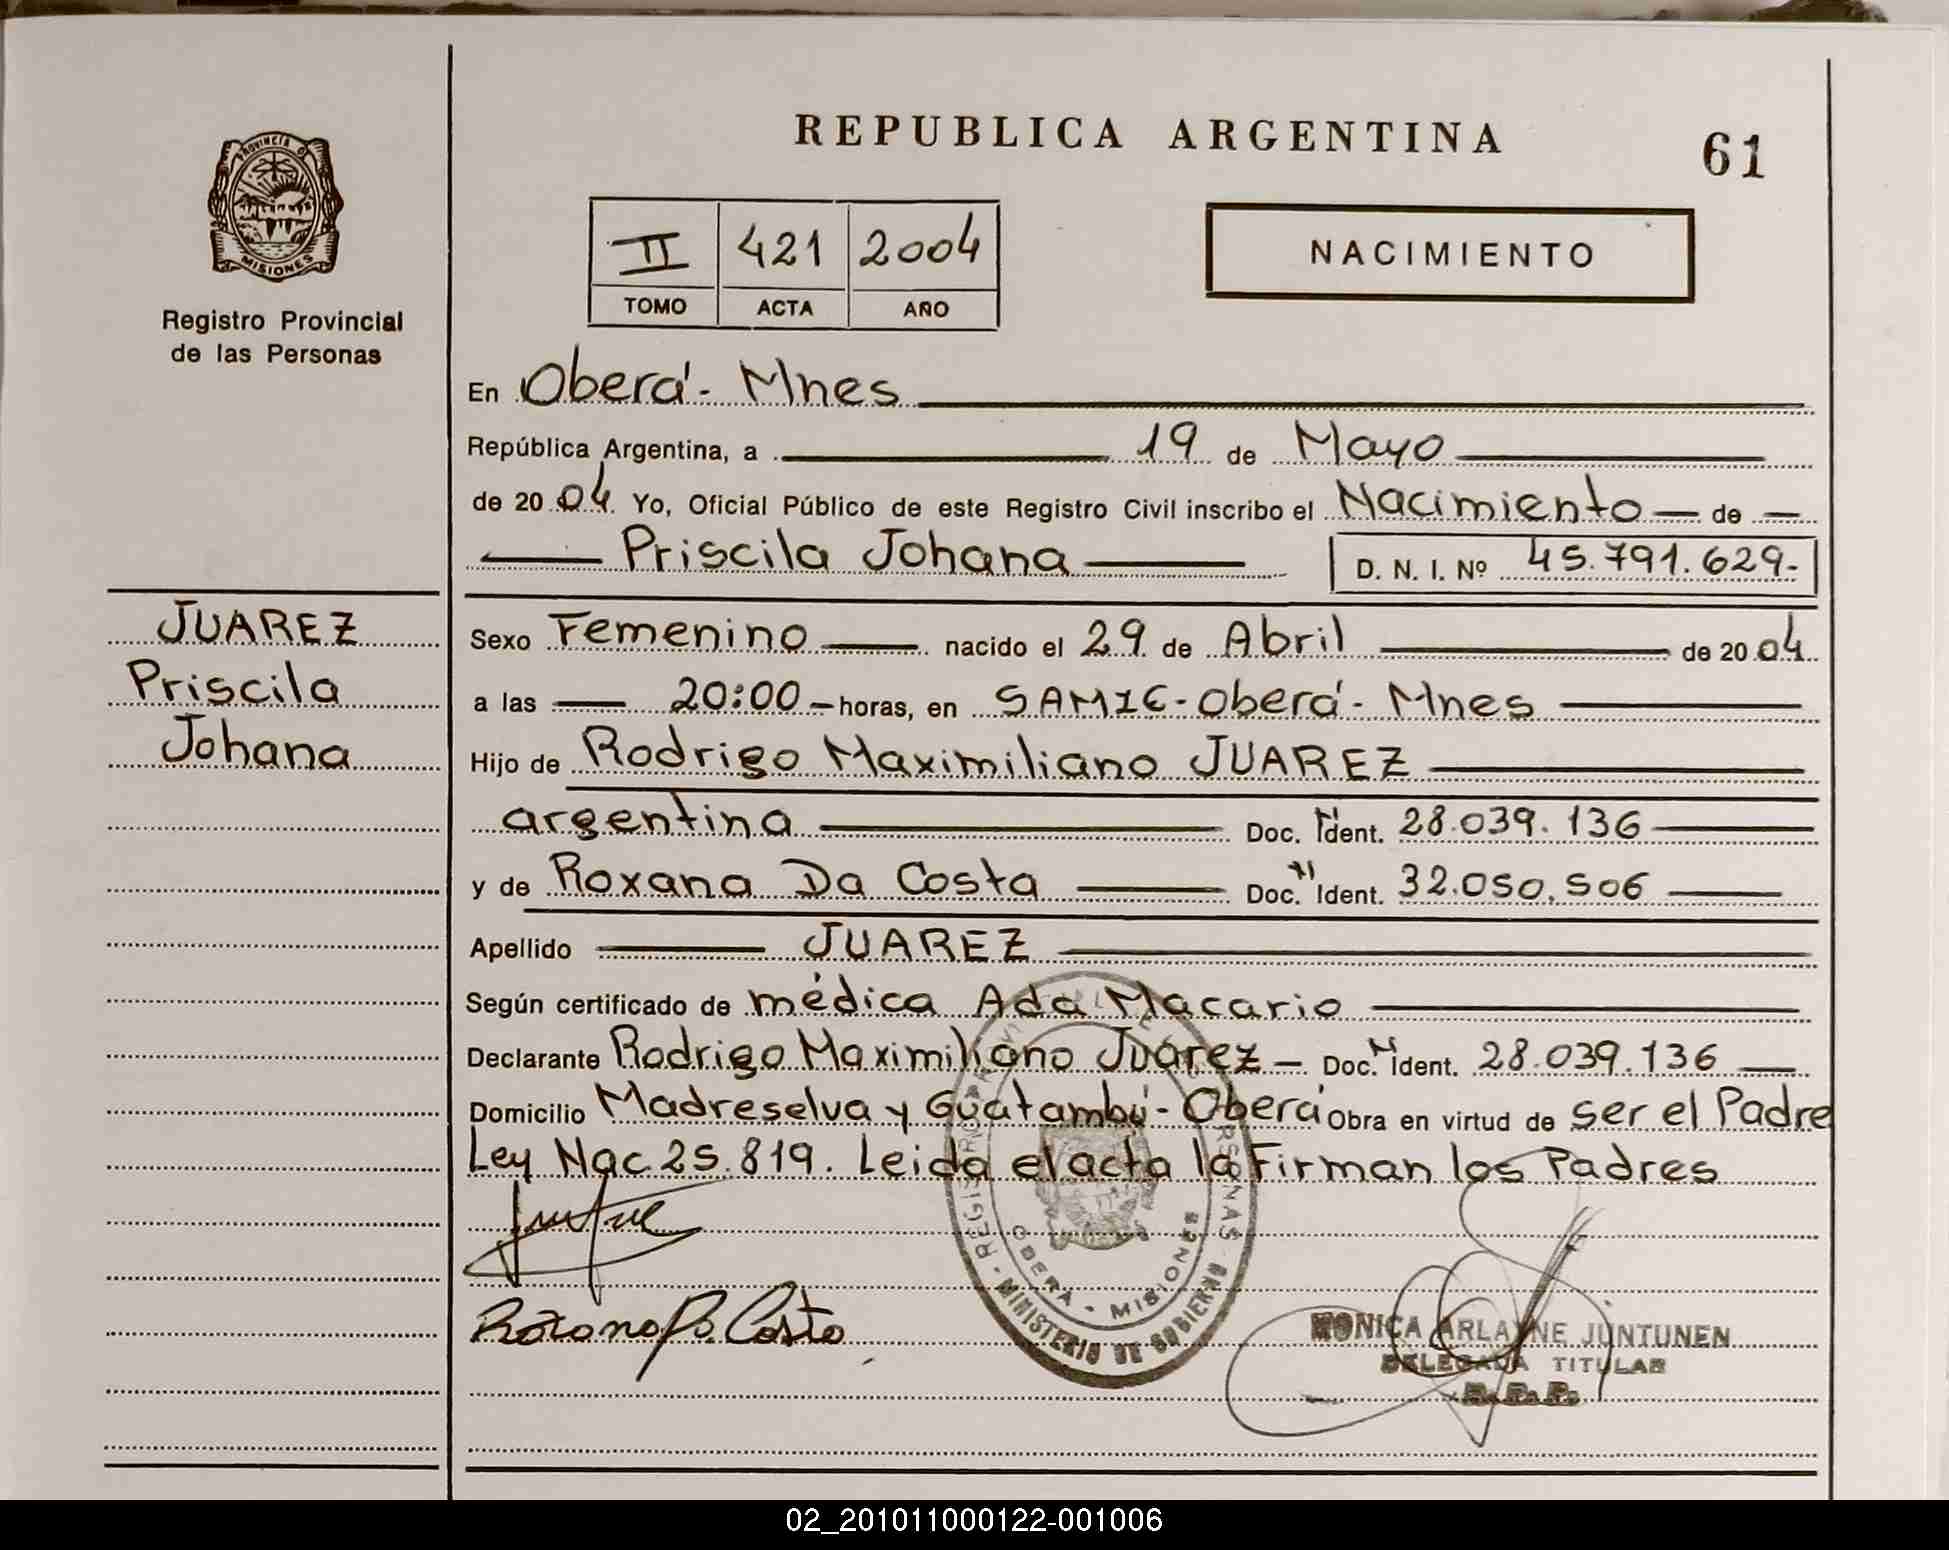 REPUBLICA ARGENTINA
61
PROVINCIA DE
MISIONES
Registro Provincial
de las Personas
II 421 2004
TOMO ACTA AÑO
NACIMIENTO
En Oberá - Mnes
República Argentina, a 19 de Mayo
de 20 04 Yo, Oficial Público de este Registro Civil inscribo el Nacimiento de
Priscila Johana D. N. I. Nº 45.791.629-
JUAREZ
Priscila
Johana
Sexo Femenino nacido el 29 de Abril de 20 04
a las 20:00 horas, en SAMIC - Oberá - Mnes
Hijo de Rodrigo Maximiliano JUAREZ
argentina Doc. Ident. 28.039.136
y de Roxana Da Costa Doc. Ident. 32.050.506
Apellido JUAREZ
Según certificado de médica Ada Macario
Declarante Rodrigo Maximiliano Juárez - Doc. Ident. 28.039.136
Domicilio Madreselva y Guatambú - Oberá Obra en virtud de ser el Padre
Ley Nac 25.819. Leida el acta la Firman los Padres
OBERA - MISIONES
MINISTERIO DE GOBIERNO
MONICA ARLAYNE JUNTUNEN
DELEGADA TITULAR
R. P. P.
02_201011000122-001006